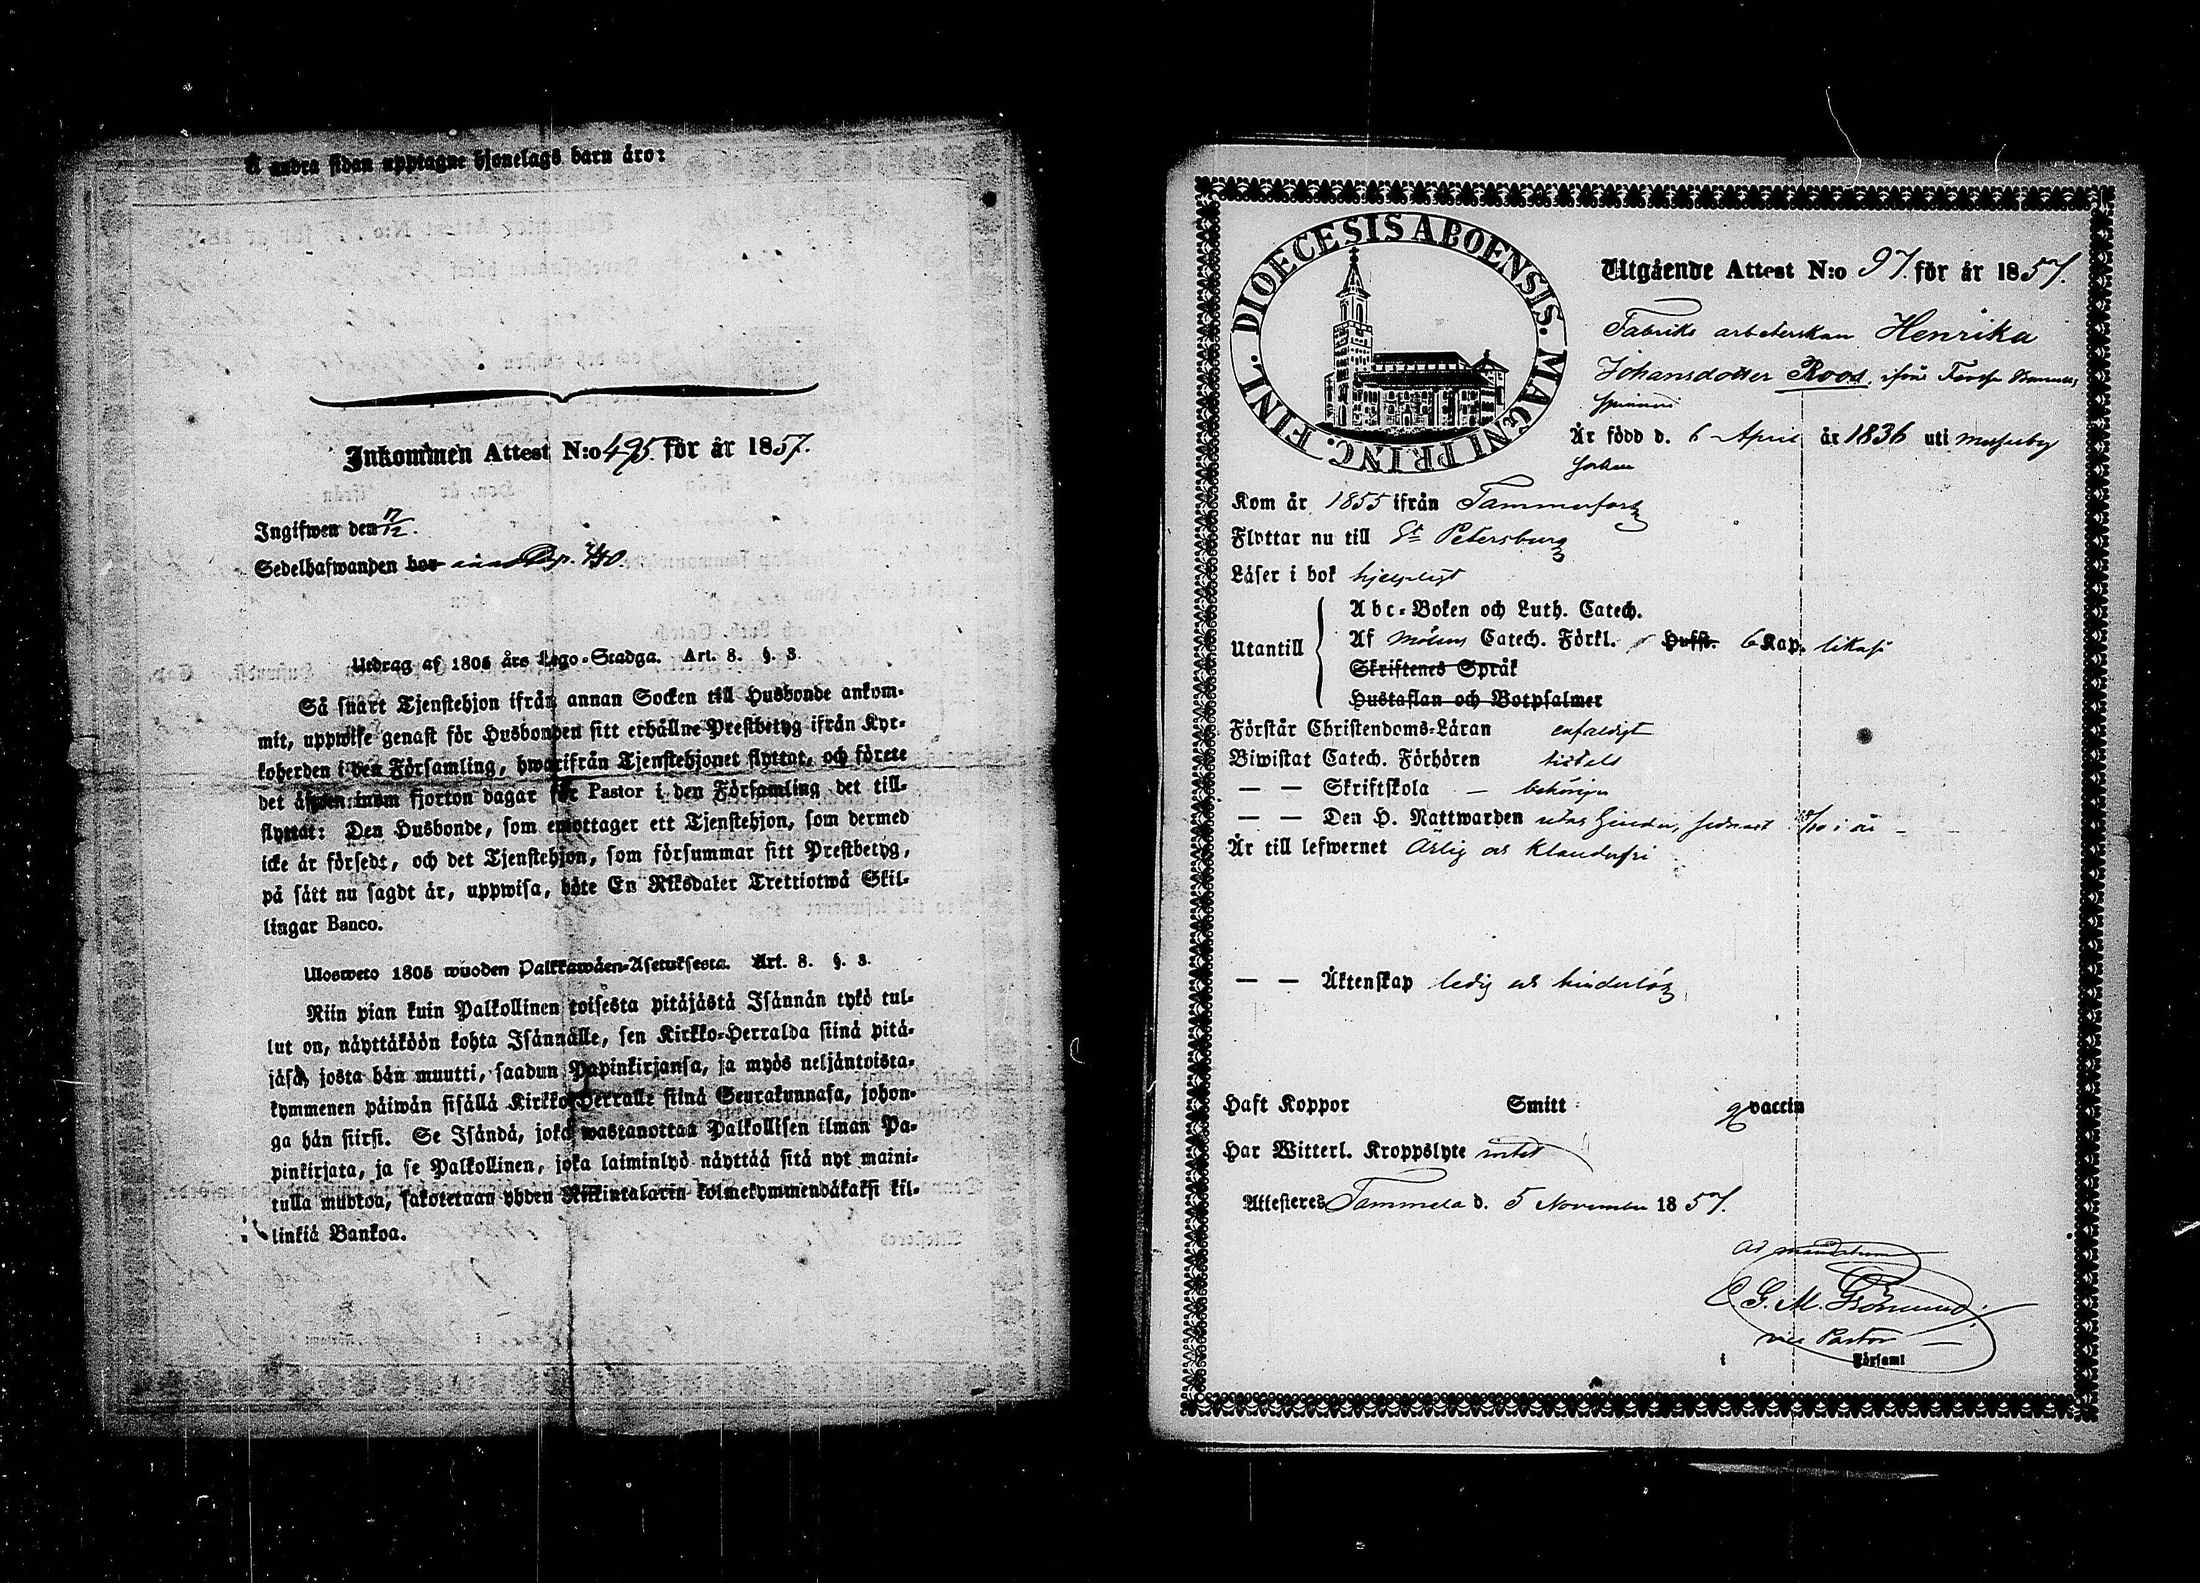 Å andra sidan upptagne hjonelags barn äro:
Inkommen Attest N:o 495. för år 1857.
Ingifwen den 17/12.
Sedelhafwanden bor
Utdrag af 1805 års Lego-Stadga. Art. 8. §. 3.
Så snart Tjenstehjon ifrån annan Socken till Husbonde ankom-
mit, uppwise genast för Husbonden sitt erhållne Prestbetyg ifrån Kyr-
koherden i den Församling, hwarifrån Tjenstehjonet flyttat, och förete
det äfwen inom fjorton dagar för Pastor i den Församling det till-
flyttat: Den Husbonde, som emottager ett Tjenstehjon, som dermed
icke är försedt, och det Tjenstehjon, som försummar sitt Prestbetyg,
på sätt nu sagdt är, uppwisa, böte En Riksdaler Trettiotwå Skil-
lingar Banco.
Ulosweto 1805 wuoden Palkkawäen-Asetuksesta. Art. 8. §. 3.
Niin pian kuin Palkollinen toisesta pitäjästä Isännän tykö tul-
lut on, näyttäköön kohta Isännälle, sen Kirkko-Herralda siinä pitä-
jäsä, josta hän muutti, saadun Papinkirjansa, ja myös neljäntoista-
kymmenen päiwän sisällä Kirkko-Herralle siinä Seurakunnasa, johon-
ga hän siirsi. Se Isändä, joka wastanottaa Palkollisen ilman Pa-
pinkirjata, ja se Palkollinen, joka laiminlyö näyttää sitä nyt maini-
tulla muotoa, sakotetaan yhden Riikintalarin kolmekymmendäkaksi kil-
linkiä Bankoa.
DIOECESIS ABOENSIS. MAGNI PRINC. FINL.
Utgående Attest N:o 97. för år 1857.
Fabriks arbeterskan Henrika
Johansdotter Roos, ifrån Forssa Bomulls
spinneri
Är född d. 6 April år 1836 uti Messuby
Socken
Kom år 1855 ifrån Tammerfors
Flyttar nu till St Petersburg
Läser i bok hjelpligt
Utantill
Abc-Boken och Luth. Catech.
Af Catech. Förkl. Hufst. 6 Kap.
Skriftenes Språk
Hustaflan och Botpsalmer
Förstår Christendoms-Läran enfaldigt
Biwistat Catech. Förhören
— — Skriftskola — behörigen
— — Den H. Nattwarden utan hinder, sednast i år
Är till lefwernet Ärlig och klanderfri
— — Äktenskap ledig och hinderlös
Haft Koppor Smitt vaccin
Har Witterl. Kroppslyte intet
Attesteres Tammela d. 5 November 1857.
Ad mandatum
C. G. M.
vice Pastor
i Församl